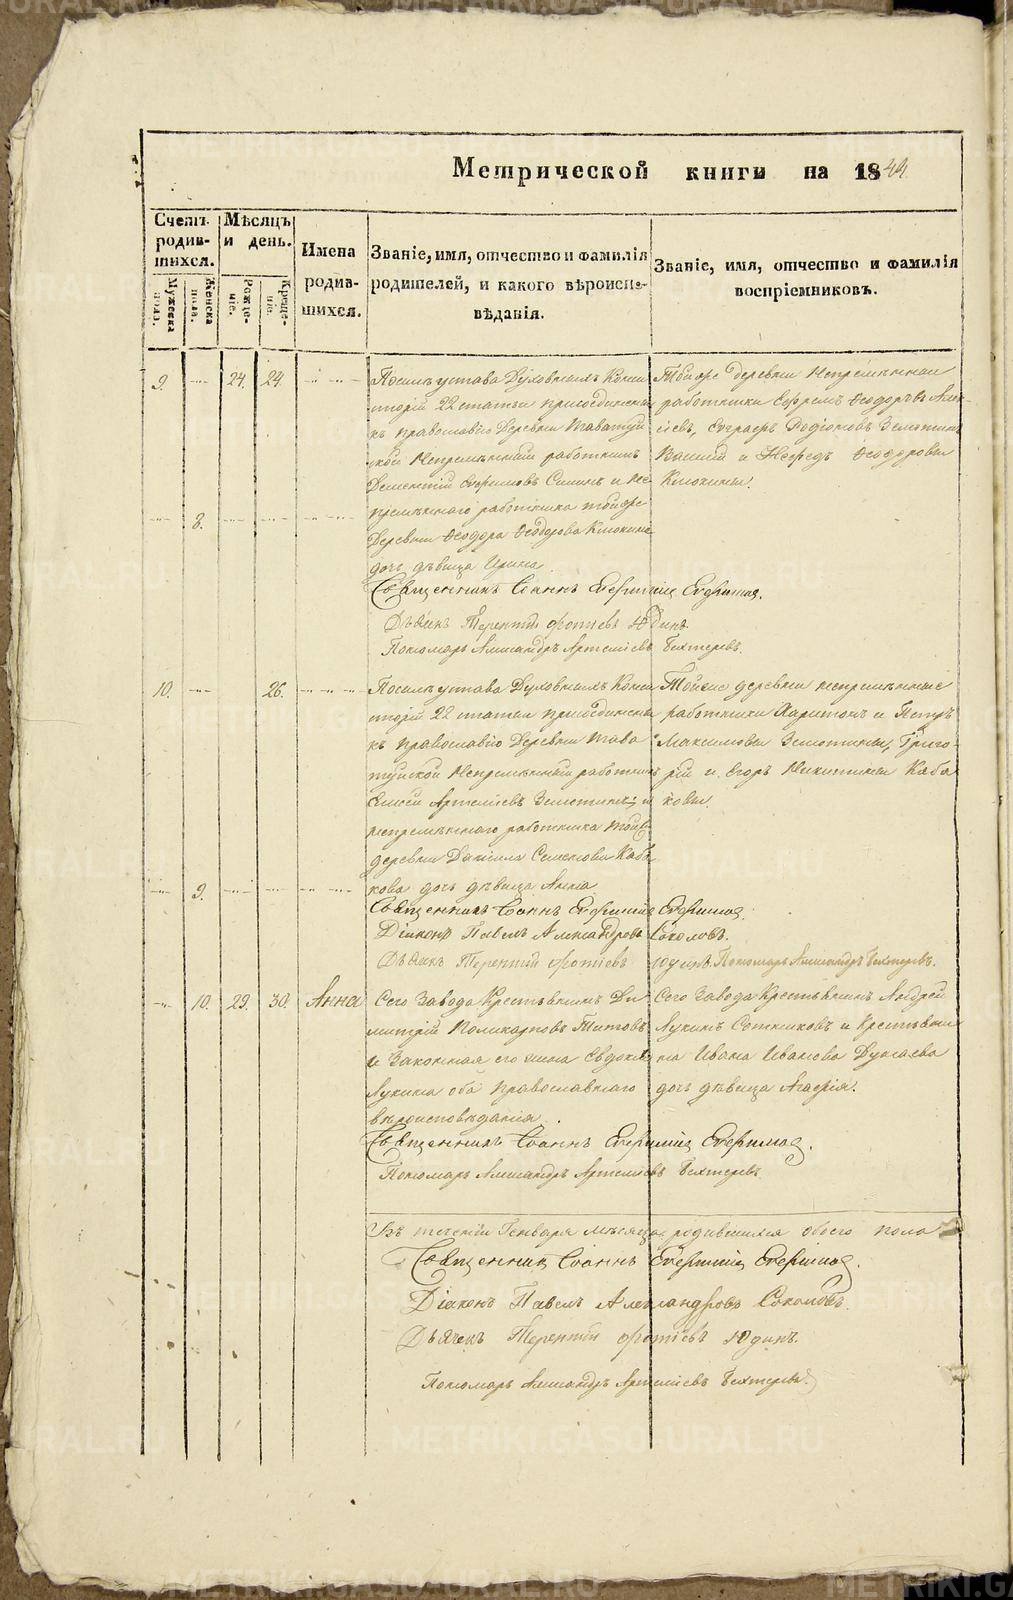 Метрической книги на 1844
Счетъ родившихся.
Мужеска пола.
Женска пола.
Мѣсяцъ и день.
Рожденіе.
Крещеніе.
Имена родившихся.
Званіе, имя, отчество и фамилія родителей, и какого вѣроисповѣданія.
Званіе, имя, отчество и фамилія воспріемниковъ.
9. 24. 24.
По силѣ устава Духовныхъ Конси
сторій 22 статьи присоединены
къ православію Деревни Таватуй
ской Непремѣнный работникъ
Дементій Ефимовъ и Не
премѣннаго работника тойже
Деревни Ѳеодора Ѳеодорова
дочь дѣвица Ирина.
Тойже деревни Непремѣнныи
работники Ефремъ Ѳеодоровъ
Родіоновъ
и Ѳеодоровы
8.
Священникъ Іоаннъ
Дьячекъ Терентій Фотіевъ Юдинъ.
Пономарь Александръ Артеміевъ Бехтеревъ.
10. 26.
По силѣ устава Духовныхъ Конси
сторій 22 статьи присоединены
къ православію Деревни Тава
туйской Непремѣнный работникъ
Елисей Артеміевъ и
непремѣннаго работника той
деревни Даніила Семенова Каба
кова дочь дѣвица Анна.
Тойже деревни непремѣнные
работники Харитонъ и Петръ
Максимовы Григо-
рій и Егоръ Никитины Каба
ковы.
9.
Священникъ Іоаннъ
Діаконъ Павелъ Александровъ Соколовъ.
Дьячекъ Терентій Фотіевъ Юдинъ. Пономарь Александръ Бехтеревъ.
10. 29. 30. Анна
Сего Завода Крестьянинъ Ди
митрій Поликарповъ Титовъ
и Законная его жена Евдокия
Лукина оба православнаго
вѣроисповѣданія.
Сего Завода Крестьянинъ Андрей
Лукинъ Сотниковъ и Крестьяни
на Ивана Иванова
дочь дѣвица Агафія.
Священникъ Іоаннъ
Пономарь Александръ Артеміевъ Бехтеревъ.
Въ теченіи Генваря мѣсяца родившихся обоего пола
Священникъ Іоаннъ
Діаконъ Павелъ Александровъ Соколовъ.
Дьячекъ Терентій Фотіевъ Юдинъ.
Пономарь Александръ Артеміевъ Бехтеревъ.
METRIKI.GASO-URAL.RU